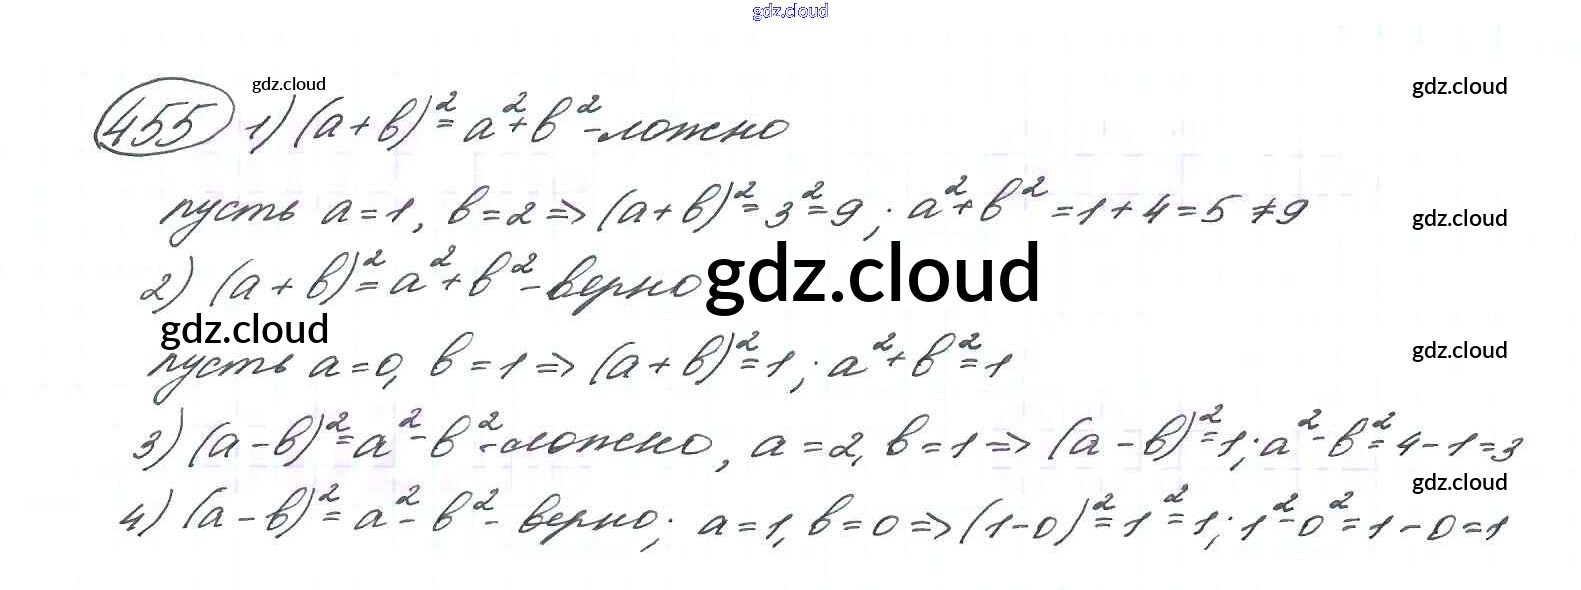 gdz.cloud
455 gdz.cloud 1) (a+b)² = a²+b² - ложно gdz.cloud
пусть a=1, b=2 => (a+b)²=3²=9; a²+b²=1+4=5≠9 gdz.cloud
2) (a+b)²=a²+b² - верно gdz.cloud
gdz.cloud
пусть a=0, b=1 => (a+b)²=1; a²+b²=1 gdz.cloud
3) (a-b)²=a²-b² - ложно, a=2, b=1 => (a-b)²=1; a²-b²=4-1=3
gdz.cloud
4) (a-b)²=a²-b² - верно; a=1, b=0 => (1-0)²=1²=1; 1²-0²=1-0=1